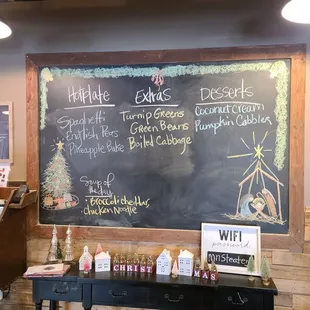 Hotplate
Spaghetti
English Peas
Pineapple Bake
Soup of
the day
Broccoli Cheddar
Chicken Noodle
Extras
Turnip Greens
Green Beans
Boiled Cabbage
Desserts
Coconut Cream
Pumpkin Cables
WIFI
password
Mrsteater
CHRISTMAS